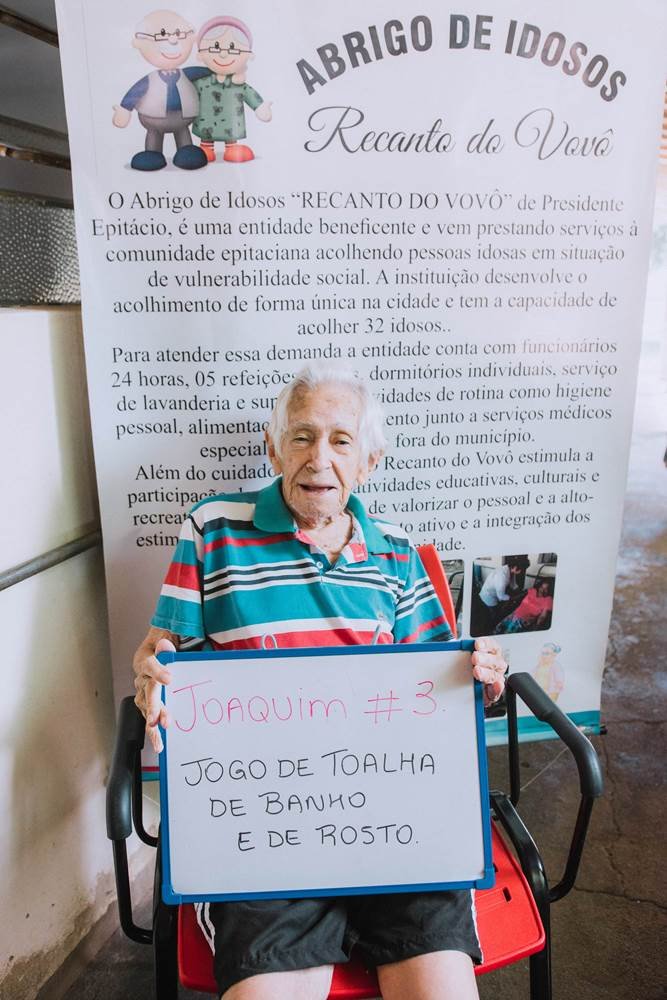 ABRIGO DE IDOSOS
Recanto do Vovô
O Abrigo de Idosos “RECANTO DO VOVÔ” de Presidente
Epitácio, é uma entidade beneficente e vem prestando serviços à
comunidade epitaciana acolhendo pessoas idosas em situação
de vulnerabilidade social. A instituição desenvolve o
acolhimento de forma única na cidade e tem a capacidade de
acolher 32 idosos..
Para atender essa demanda a entidade conta com funcionários
24 horas, 05 refeições dormitórios individuais, serviço
de lavanderia e de rotina como higiene
pessoal, junto a serviços médicos
fora do município.
Além do Recanto do Vovô estimula a
participação educativas, culturais e
de valorizar o pessoal e a alto-
ativo e a integração dos
JOAQUIM #3.
JOGO DE TOALHA
DE BANHO
E DE ROSTO.